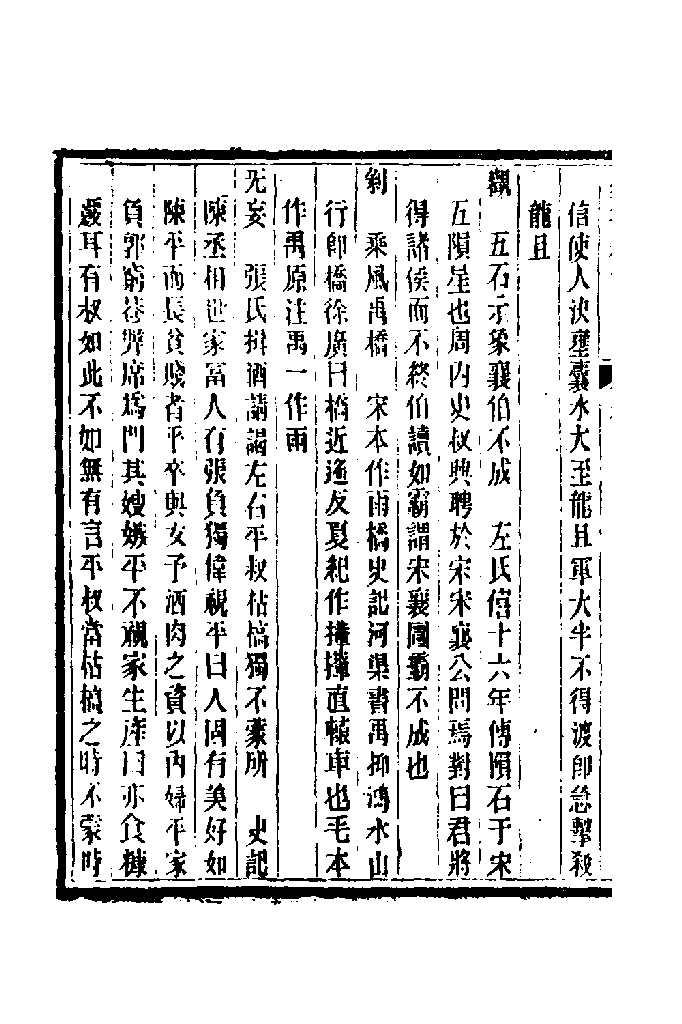 信使人決壅囊水大至龍且軍大半不得渡卽急擊殺
龍且
觀　五石示象襄伯不成　左氏僖十六年傳隕石于宋
五隕星也周內史叔興聘於宋宋襄公問焉對曰君將
得諸侯而不終伯讀如霸謂宋襄圖霸不成也
剝　乘風禹橋　宋本作雨橋史記河渠書禹抑鴻水山
行卽橋徐廣曰橋近遙反夏紀作檋檋直轅車也毛本
作禹原注禹一作雨
无妄　張氏揖酒請謁左右平叔枯槁獨不蒙所　史記
陳丞相世家富人有張負獨偉視平曰人固有美好如
陳平而長貧賤者乎卒與女予酒肉之資以內婦平家
負郭窮巷獘席爲門其嫂嫉平不視家生產曰亦食糠
覈耳有叔如此不如無有言平叔當枯槁之時不蒙時